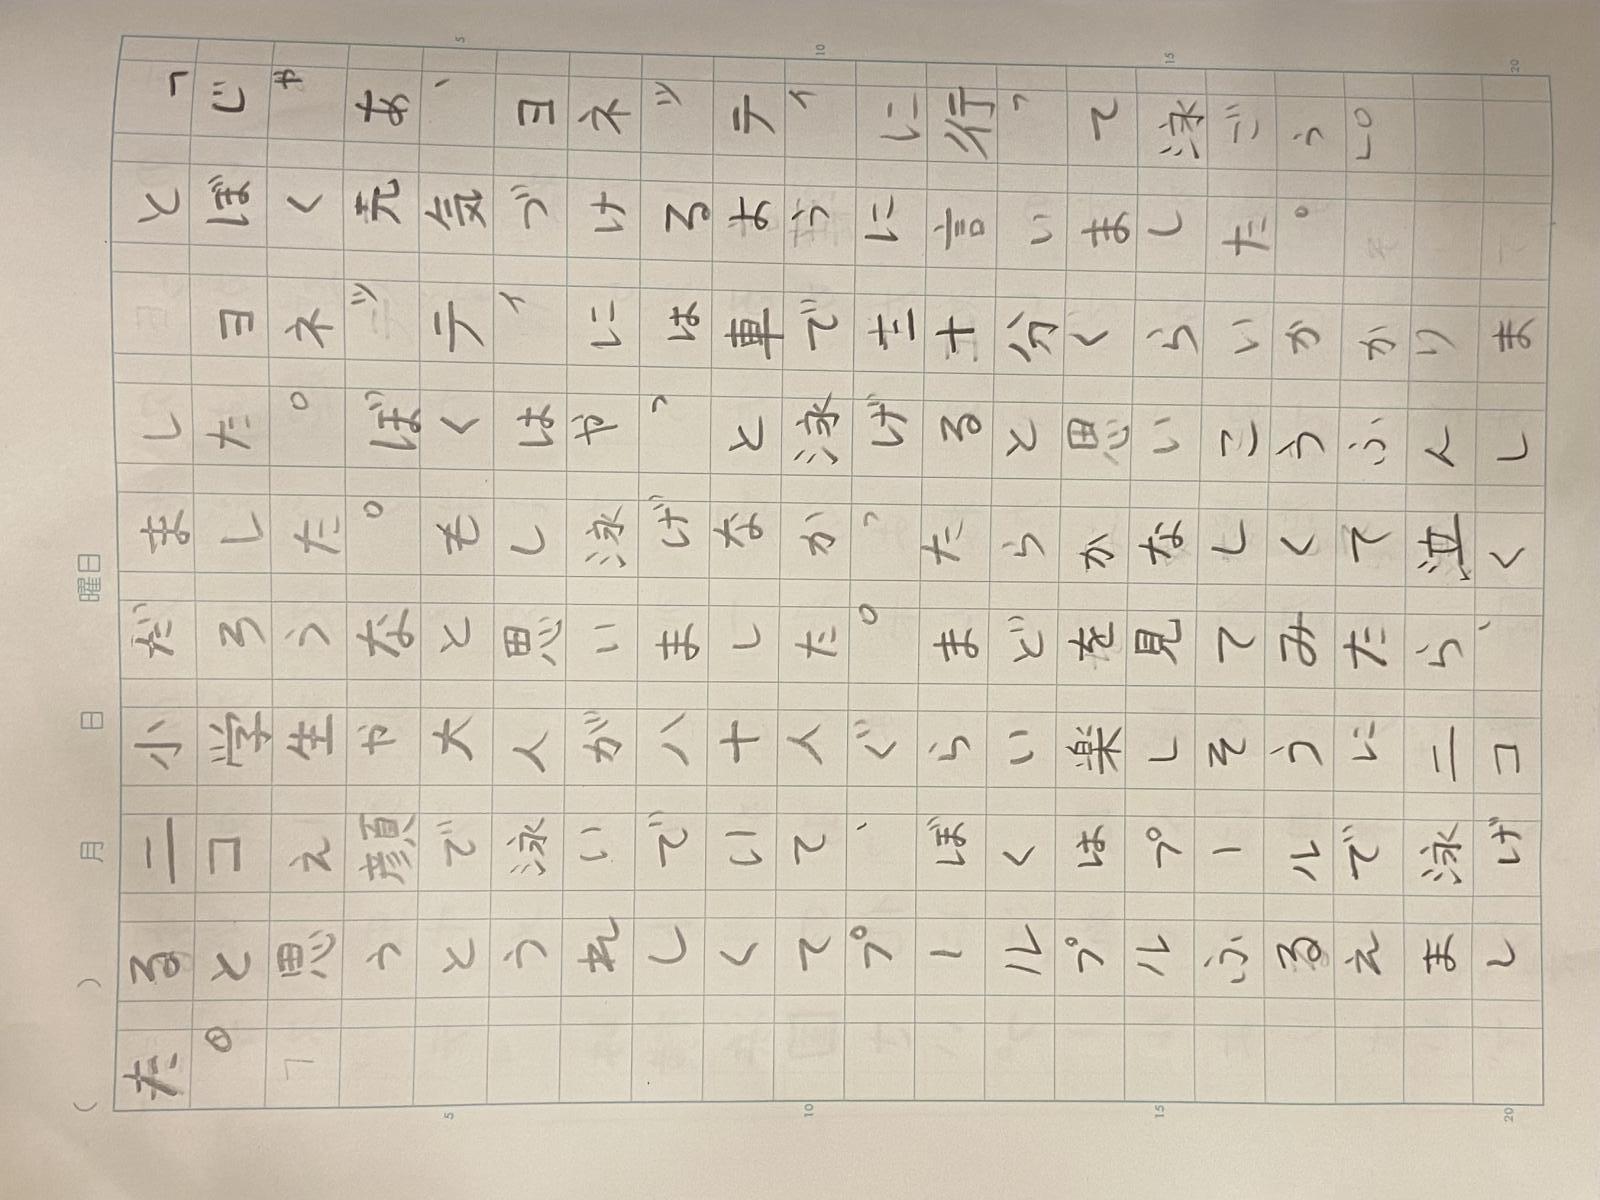 月 日 曜日 ( )
「じゃあ、ヨネッティに行って泳ごう。」
とぼく元気づけるように言いました。
ヨネッティには車で三十分くらいかかりま
した。ぼくはやっと泳げると思いこうふんし
ました。もし泳げなかったらかなしくて泣く
だろうなと思いました。まどを見てみたら、
小学生や大人が八十人ぐらい楽しそうにニコ
ニコえ顔で泳いでいて、ぼくはプールで泳げ
ると思うとうれしくてプールプルふるえまし
た。
5 10 15 20
5 10 15 20